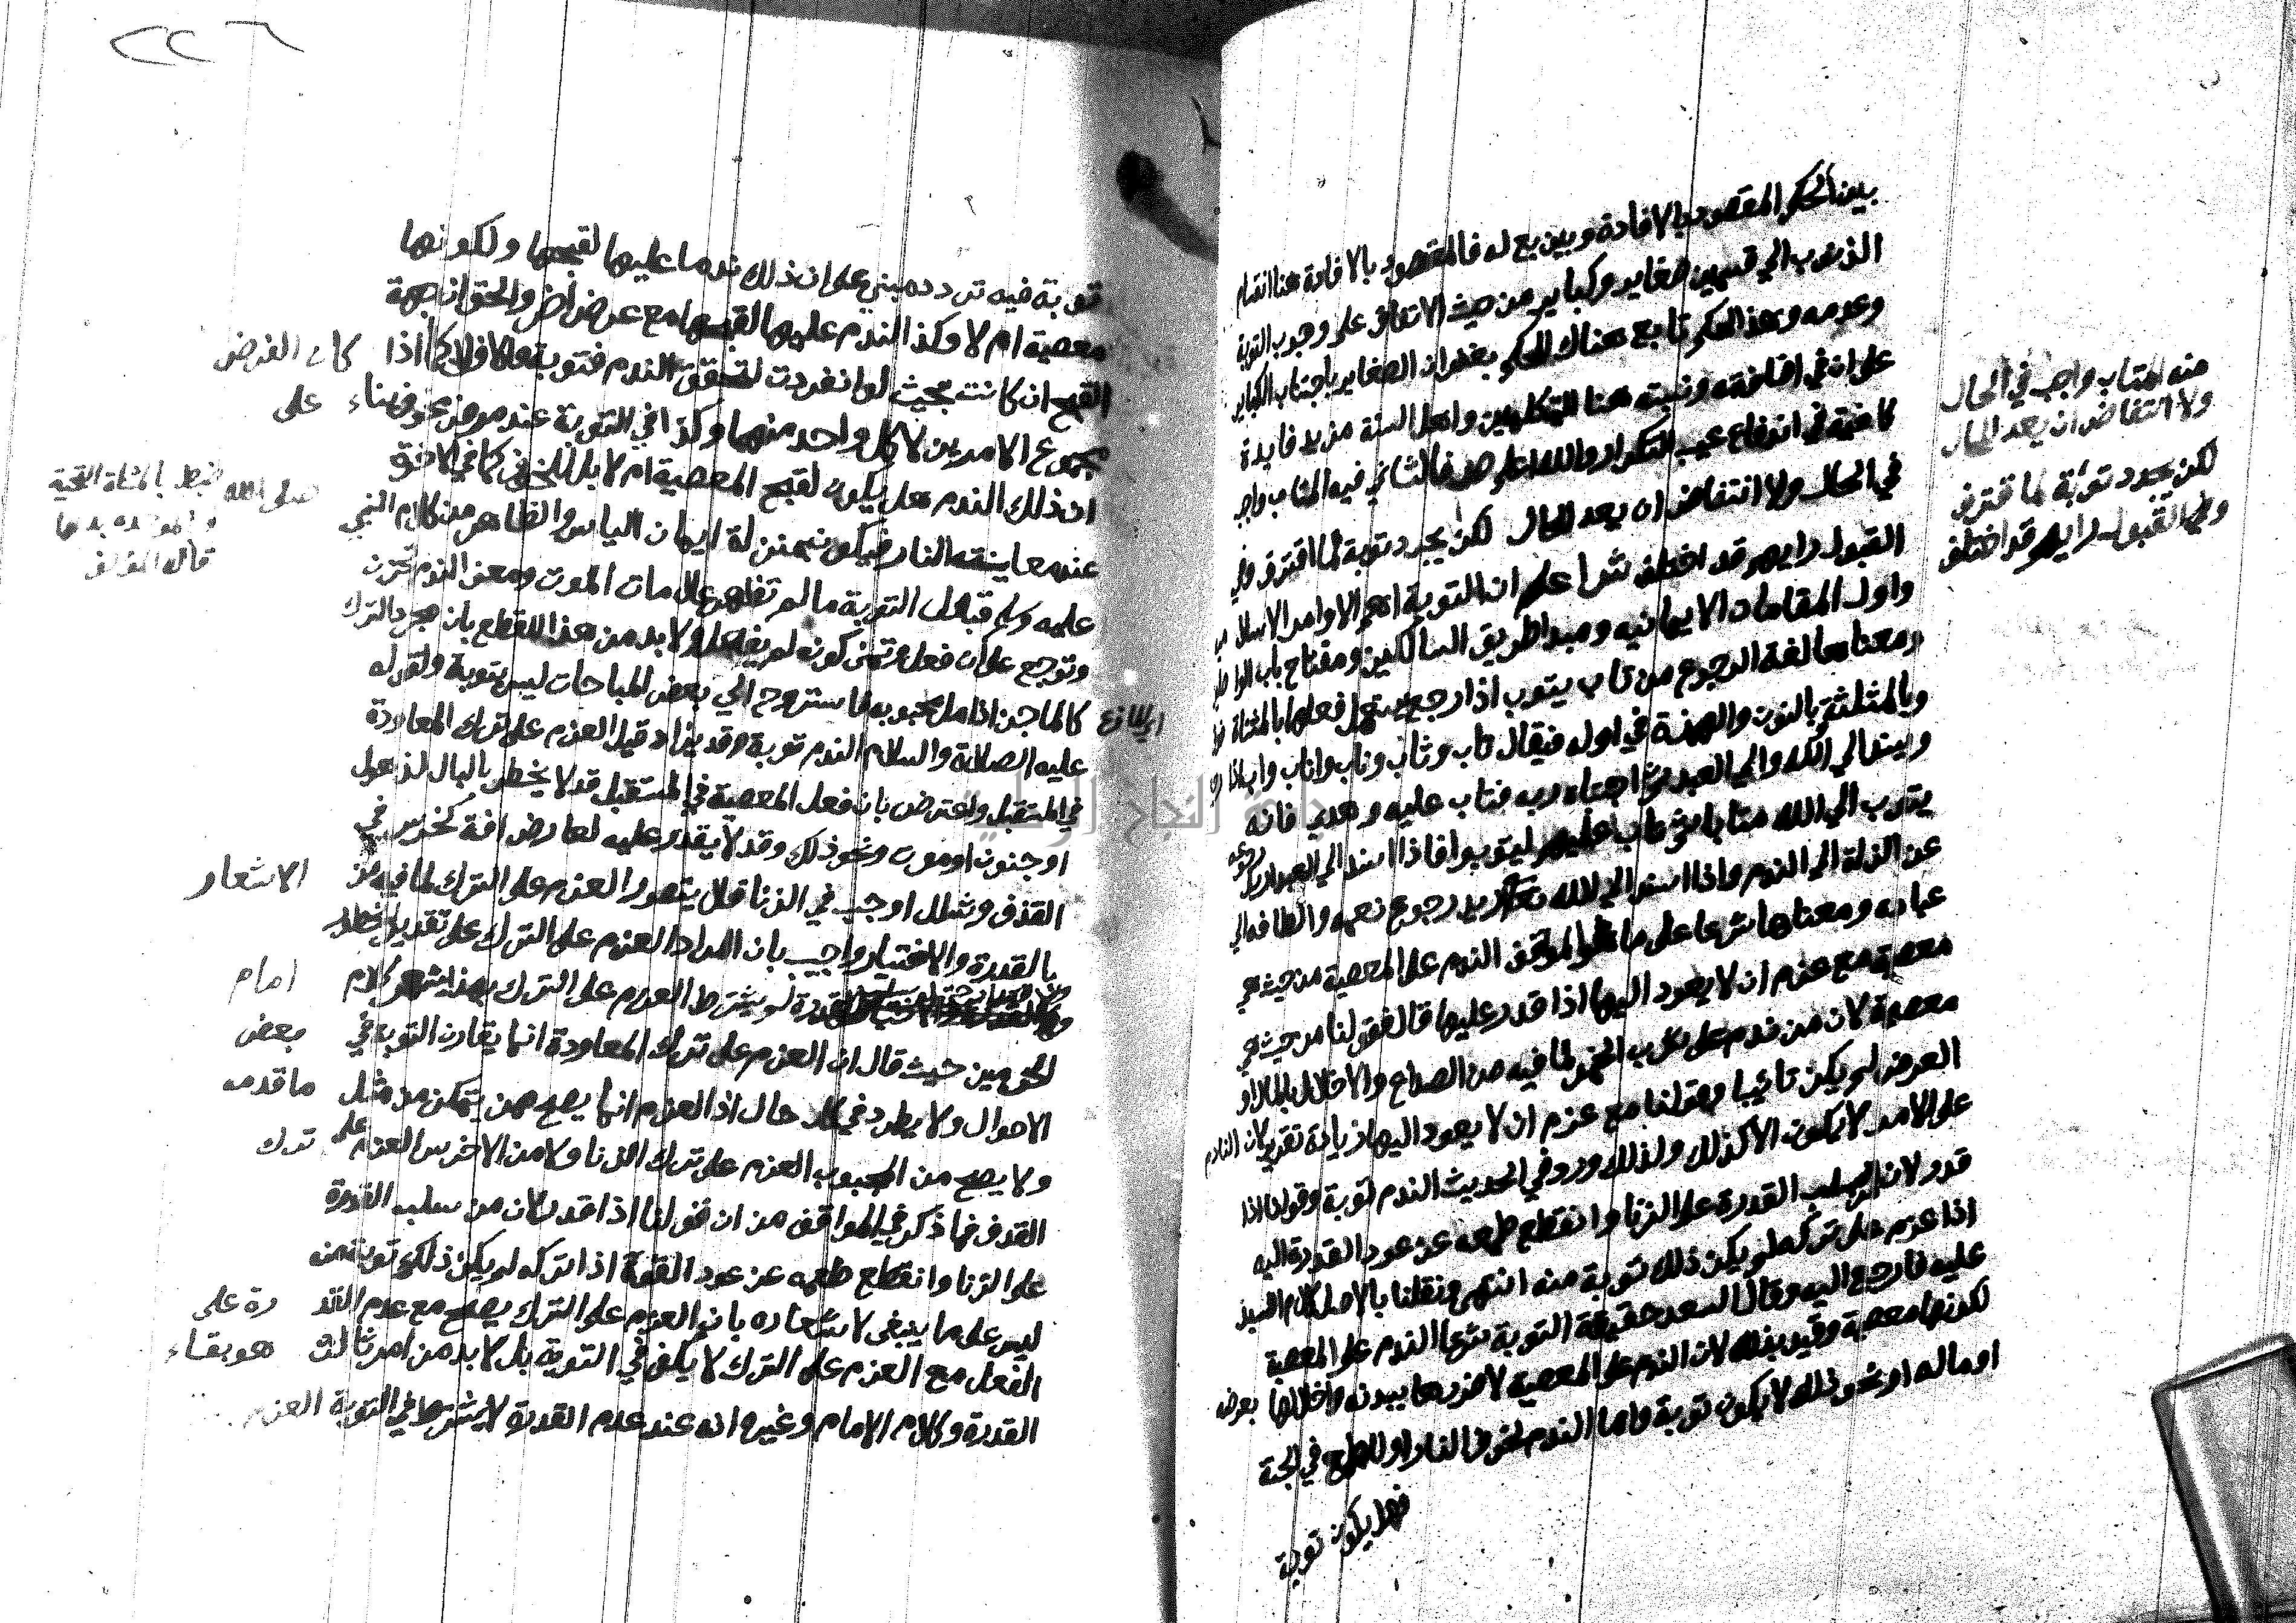 بين الحكم المقصود بالافادة وبين بع له فالمقصود بالافادة هنا انقسام
الذنوب الي قسمين صغاير وكباير من حيث الاتفاق على وجوب التوبة
وعدمه وهذا الحكم تابع هناك للحكم بغفران الصغاير باجتناب الكباير
على ان في اضافته ونسبته هنا للمتكلمين واهل السنة مزيد فايدة
كافية في اندفاع عيب التكرار والله اعلم فالثاني فيه المتاب واجب
في الحال ولا انتقاض ان يعد للحال لكن يجدد توبة لما اقترف وفي
القبول رايهم قد اختلف على ان التوبة اهم الاوامر
واول المقامات الايمانيه ومبدا طريق السالكين ومفتاح باب
ومعناها لغة الرجوع من تاب يتوب اذا رجع فعلها بالمثناة
وبالمثلثة وبالنون والهمزة في اوله فيقال تاب وثاب وناب واناب
ويسند الي الله والي العبد ثم اجتباه ربه فتاب عليه وهدي فانه
يتوب الي الله متابا ثم تاب عليهم ليتوبوا فاذا اسند الي العبد اريد رجوعه
عن الزلة الي الندم واذا اسند الي الله اريد رجوع نعمه والطافه الي
عباده ومعناها شرعا على ما في المواقف الندم على المعصية من حيث هي
معصية مع عزم ان لا يعود اليها اذا قدر عليها قال فقولنا من حيث هي
معصية لان من ندم على شرب الخمر لما فيه من الصداع والاخلال بالمال او
العرض لم يكن تائبا وقولنا مع عزم ان لا يعود اليها زيادة تقرير لان النادم
على الامر لا يكون الا كذلك ولذلك ورد في الحديث الندم توبة وقولنا اذا
قدر لان من سلب القدرة على الزنا وانقطع طمعه عن عود القدرة اليه
اذا عزم على تركه لم يكن ذلك توبة منه انتهى ونقلنا بالاصل كلام السيد
عليه فارجع اليه وقال السعد حقيقة التوبة شرعا الندم على المعصية
لكونها معصية وقيد بذلك لان الندم على المعصية لاضرارها ببدنه واخلالها بعرضه
او ماله او نحو ذلك لا يكون توبة واما الندم لخوف النار او للطمع في الجنة
فهل يكون توبة
منه المتاب واجب في الحال
ولا انتقاض ان يعد للحال
لكن يجدد توبة لما اقترف
وفي القبول رايهم قد اختلف
توبة فيه تردد مبني على ان ذلك ندما عليها لقبحها ولكونها
معصية ام لا وكذا الندم عليها لقبحها مع عرض اخر والحق ان جهة
القبح ان كانت بحيث لو انفردت لتحقق الندم فتوبة والا فلا كما اذا كان الغرض
مجموع الامرين لا كل واحد منهما وكذا في التوبة عند مرض مخوف بناء على
ان ذلك الندم هل يكون لقبح المعصية ام لا بل للخوف كما في الاخرة
عند معاينته النار فيكون بمنزلة ايمان الياس والظاهر من كلام النبي صلى الله
عليه وسلم قبول التوبة ما لم تظهر علامات الموت ومعنى الندم تحزن
وتوجع على ان فعل وتمنى كونه لم يفعل ولا بد من هذا للقطع بان مجرد الترك
كالماجن اذا مل مجونه فاستروح الي بعض المباحات ليس بتوبة ولقوله
عليه الصلاة والسلام الندم توبة وقد يزاد قيد العزم على ترك المعاودة
في المستقبل واعترض بان فعل المعصية في المستقبل قد لا يخطر بالبال لذهول
او جنون او موت ونحو ذلك وقد لا يقدر عليه لعارض افة كخرس في
القذف وشلل او جب في الزنا فلا يتصور العزم على الترك لما فيه من الاشعار
بالقدرة والاختيار واجيب بان المراد العزم على الترك على تقدير الخطور
لم يشترط العزم على الترك بهذا يشعر كلام امام
الحرمين حيث قال ان العزم على ترك المعاودة انما يقارن التوبة في بعض
الاحوال ولا يطرد في كل حال اذ العزم انما يصح ممن يتمكن من مثل ما قدمه
ولا يصح من المجبوب العزم على ترك الزنا ولا من الاخرس العزم على ترك
القذف فما ذكر في المواقف من ان قولنا اذا قدر لان من سلب القدرة
على الزنا وانقطع طمعه عن عود القوة اذا تركه لم يكن ذلك توبة منه
ليس على ما ينبغي لاشعاره بان العزم على الترك يصح مع عدم القدرة على
الفعل مع العزم على الترك لا يكفي في التوبة بل لا بد من امر ثالث هو بقاء
القدرة وكلام الامام وغيره انه عند عدم القدرة لا يشترط في التوبة العزم
ضبط بالمثناة التحتية
قاله المؤلف